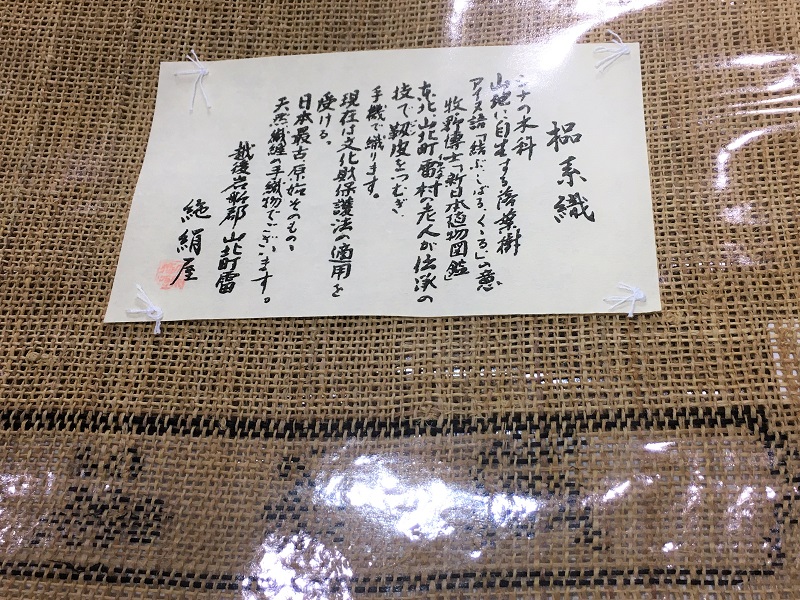 榀系織
シナの木科
山地に自生する落葉樹
アイヌ語「結ぶ・しばる、くくる」の意
牧野博士「新日本植物図鑑」
東北山北町雷村の老人が伝承の
技で靱皮をつむぎ
手機で織ります。
現在は文化財保護法の適用を
受ける。
日本最古、原始そのもの、
天然繊維の手織物でございます。
越後岩船郡山北町雷
絹屋